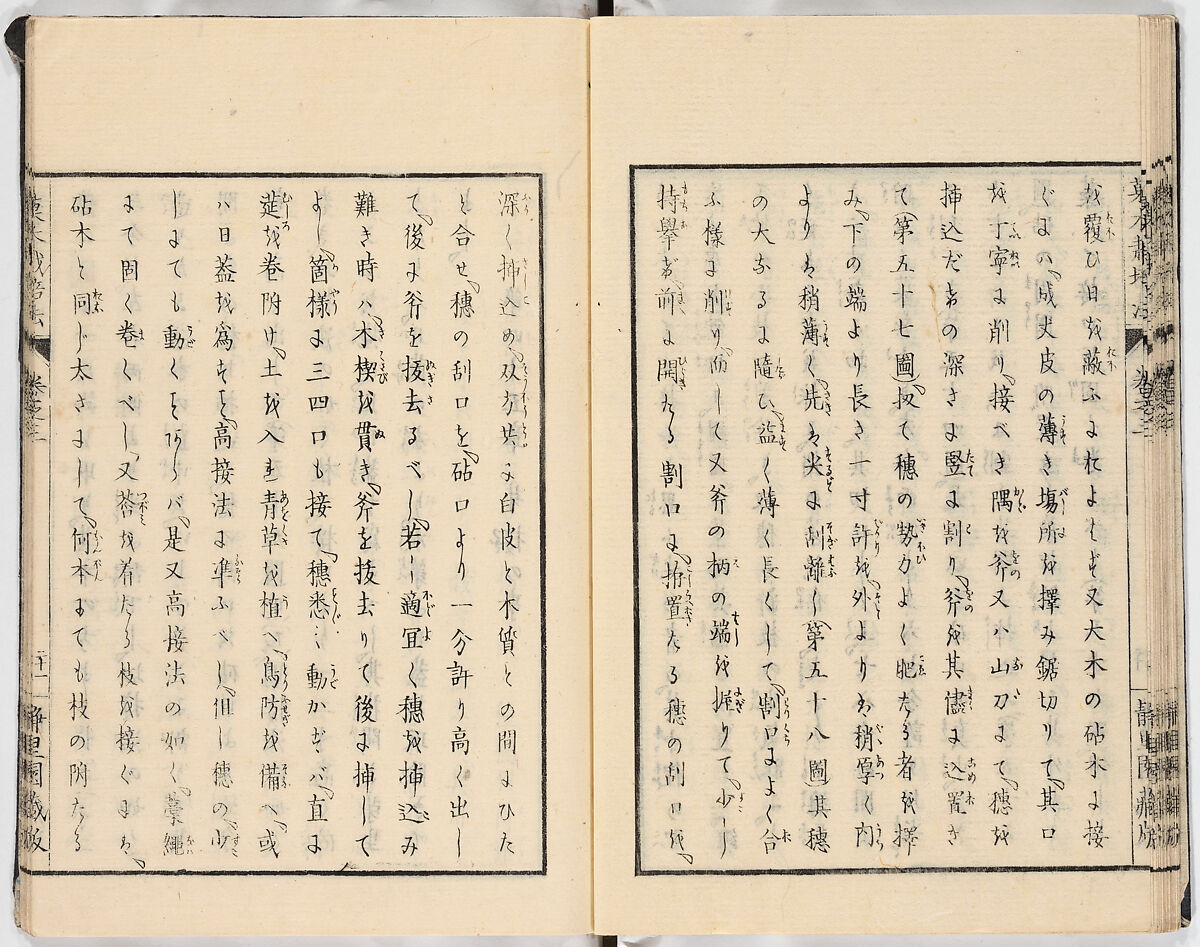 を覆ひ日を蔽ふよれよしとす又大木の砧木に接
ぐには、成丈皮の薄き塲所を擇み鋸切りて、其口
を丁寧に削り、接べき隅を斧又ハ山刀にて、穗を
挿込だけの深さに竪に割り、斧を其儘に込置き
て(第五十七圖)扨て穗の勢力よく肥たる者を擇
み、下の端より長さ一寸許を、外よりは稍厚く内
よりは稍薄く、先は尖に刮離し(第五十八圖)其穗
の大なるに隨ひ、益く薄く長くして、割口によく合
ふ樣に削り、而して又斧の柄の端を握りて、少し
持擧げ、前に開たる割口に、拵置たる穗の刮口を、
深く挿込め、双方共に白皮と木質との間にひた
と合せ、穗の刮口を、砧口より一分許り高く出し
て、後に斧を拔去るべし、若し適宜く穗を挿込み
難き時ハ、木楔を貫き、斧を拔去りて後に挿して
よし、箇樣に三四口も接て、穗悉く動かざバ、直に
莚を卷附け、土を入れ青草を植へ、鳥防を備へ、或
ハ日蓋を爲すこと、高接法に準ふべし、但し穗の、少
しにても動くことあらバ、是又高接法の如く、藁繩
にて固く卷くべし、又莟を着たる枝を接ぐには、
砧木と同じ太さにして、何本にても枝の附たる
卷之二
二十一
靜里園藏版